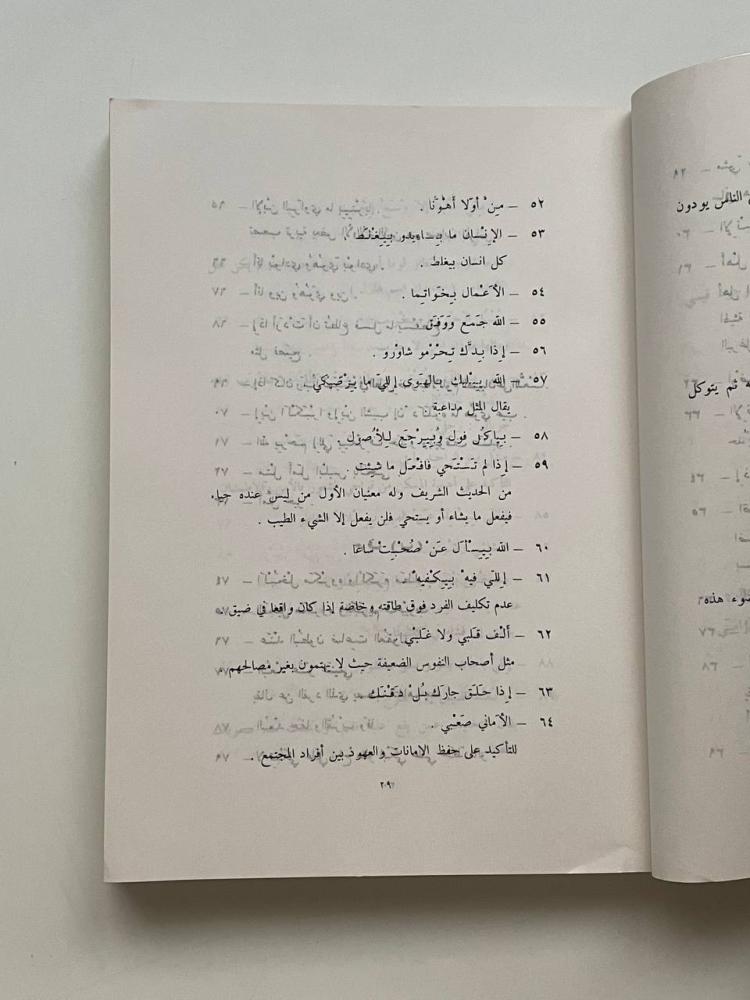 ٥٢ – مِنْ أوّلا أهْوَنا .
٥٣ – الإنْسان ما بيـ بِيِغْلَطْ .
كل انسان بيغلط .
٥٤ – الأعْمال بِخَواتِما .
٥٥ – الله جَمَع وَوَفَق
٥٦ – إذا بِدَّك تِحْرْمو شاوْرو .
٥٧ – الله يِبْليك بالهَوى إللي ما يِرْضيكي
يقال المثل مداعبة
٥٨ – بياكُل فول وُبيِرْجَع لـلأُصول .
٥٩ – إذا لم تَسْتَحي فافْعَل ما شِئت .
من الحديث الشريف وله معنيان الأول من ليس عنده حياء
فيفعل ما يشاء أو يستحي فلن يفعل إلا الشيء الطيب .
٦٠ – الله بِيِسْأَل عَنْ صُحْبِتْ ساعا .
٦١ – إللي فيهْ بِيِكْفيهْ
عدم تكليف الفرد فوق طاقته وخاصة إذا كان واقعا في ضيق .
٦٢ – ألْف قَلْبي ولا غَلَبْي
مثل أصحاب النفوس الضعيفة حيث لا يهتمون بغير مصالحهم
٦٣ – إذا حَلَق جارَك بُلْ دَقْنَك
٦٤ – الأماني صَعْبي .
للتأكيد على حفظ الامانات والعهوذ بين أفراد المجتمع .
٢٠٩
الناس يودون
ثم يتوكل
ضوء هذه